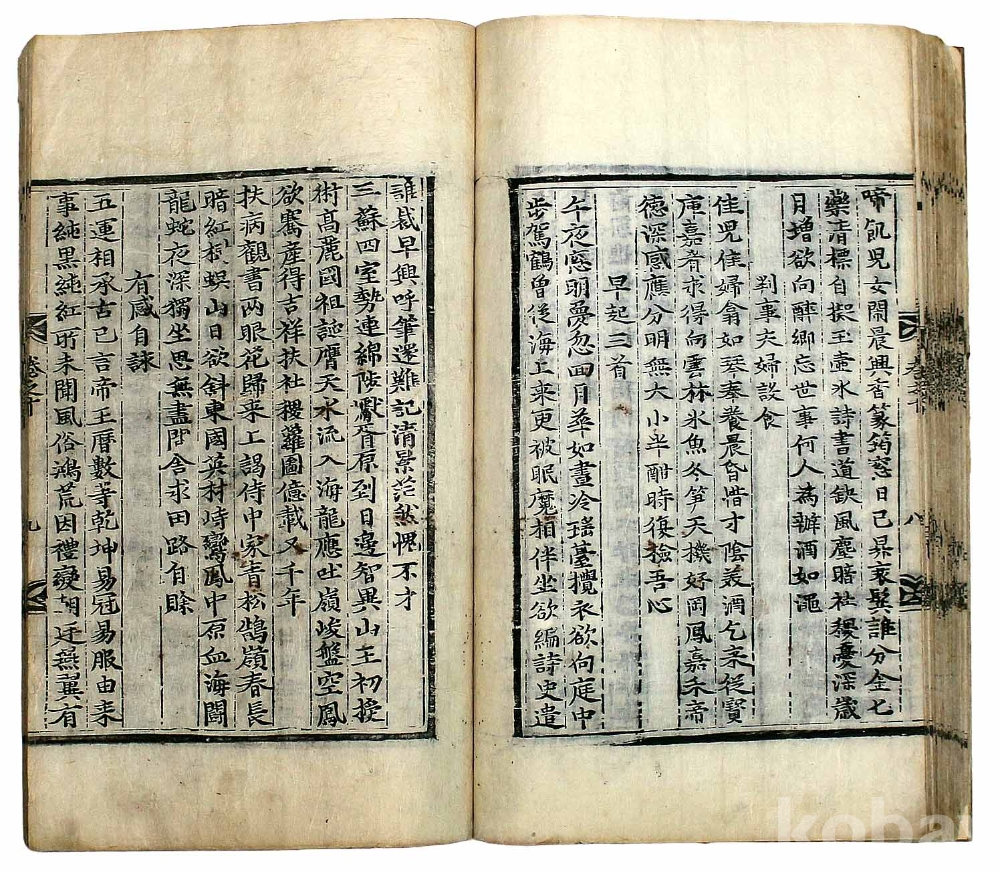 啼飢兒女鬧晨興香篆筠窓日已昇衰鬂誰分金七
藥淸標自擬玉壺氷詩書道缺風塵暗社稷憂深歲
月增欲向醉鄕忘世事何人為辦酒如澠
判事夫婦設食
佳兒佳婦翁如琴奉養晨昏惜才陰羡酒乞來從寶
庾嘉肴求得向雲林氷魚冬笋天機好岡鳳嘉禾帝
德深感應分明無大小半酣時復檢吾心
早起三首
午夜窓明夢忽回月華如晝冷瑤臺攬衣欲向庭中
步駕鶴曾從海上来更被眠魔相伴坐欲編詩史遣
誰裁早興呼筆還難記淸景茫然愧不才
三蘇四室勢連綿陟巘胥原到日邊智異山王初授
術高麗國祖誕膺天水流入海龍應吐嶺峻盤空鳳
欲騫産得吉祥扶社稷蘿圖億載又千年
扶病觀書兩眼花歸来上謁侍中家靑松鵠嶺春長
暗紅樹蜈山日欲斜東國英材峙鸞鳳中原血海鬪
龍蛇夜深獨坐思無盡問舍求田路自賒
有感自詠
五運相承古已言帝王曆數等乾坤易冠易服由来
事純黑純紅所未聞風俗鴻荒因禮變朝廷燕翼有
卷之十
八
九
koba